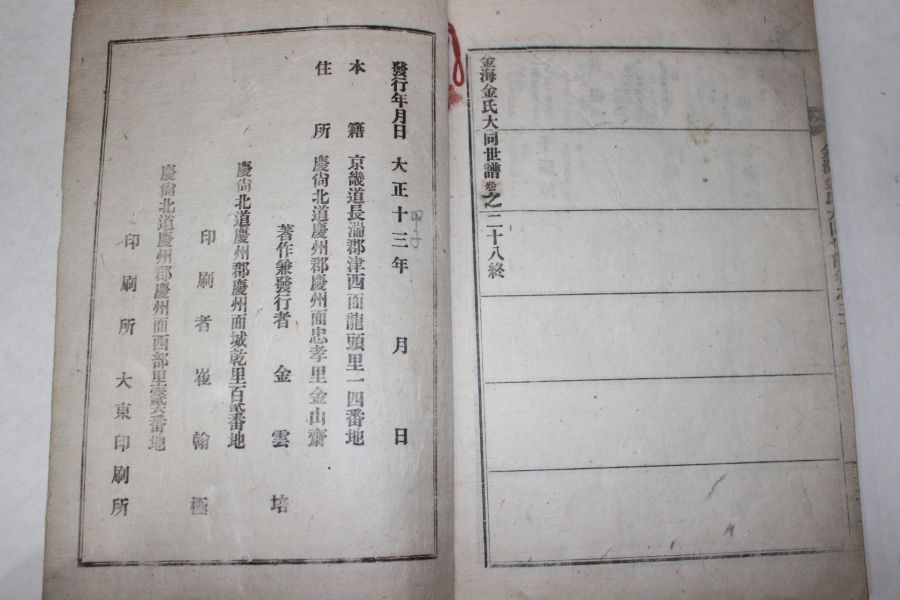 金海金氏大同世譜卷之二十八終
發行年月日 大正十三年 月 日
甲子
本籍 京畿道長湍郡津西面龍頭里一四番地
住所 慶尙北道慶州郡慶州面忠孝里金山齋
著作兼發行者 金雲培
慶尙北道慶州郡慶州面城乾里百貳番地
印刷者 崔翰極
慶尙北道慶州郡慶州面西部里 番地
印刷所 大東印刷所